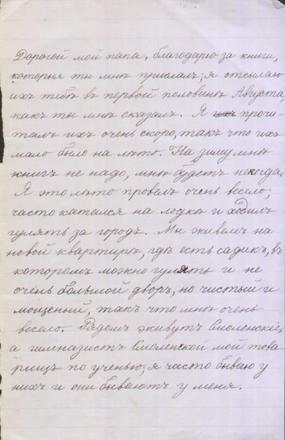 Дорогой мой папа, благодарю за книги,
которыя ты мнѣ прислалъ; я отсылаю
ихъ тебѣ въ первой половинѣ Августа,
какъ ты мнѣ сказалъ. Я ихъ прочи-
талъ ихъ очень скоро, такъ что ихъ
мало было на лѣто. На зиму мнѣ
книгъ не надо, мнѣ будетъ некогда.
Я это лѣто провелъ очень весело,
часто катался на лодкѣ и ходилъ
гулять за городъ. Мы живемъ на
новой квартирѣ, гдѣ есть садикъ, въ
которомъ можно гулять и не
очень большой дворъ, но чистый и
мощеный, такъ что мнѣ очень
весело. Рядомъ живутъ Смоленскіе,
а гимназистъ Смоленскій мой това
рищъ по ученью; я часто бываю у
нихъ и они бываютъ у меня.